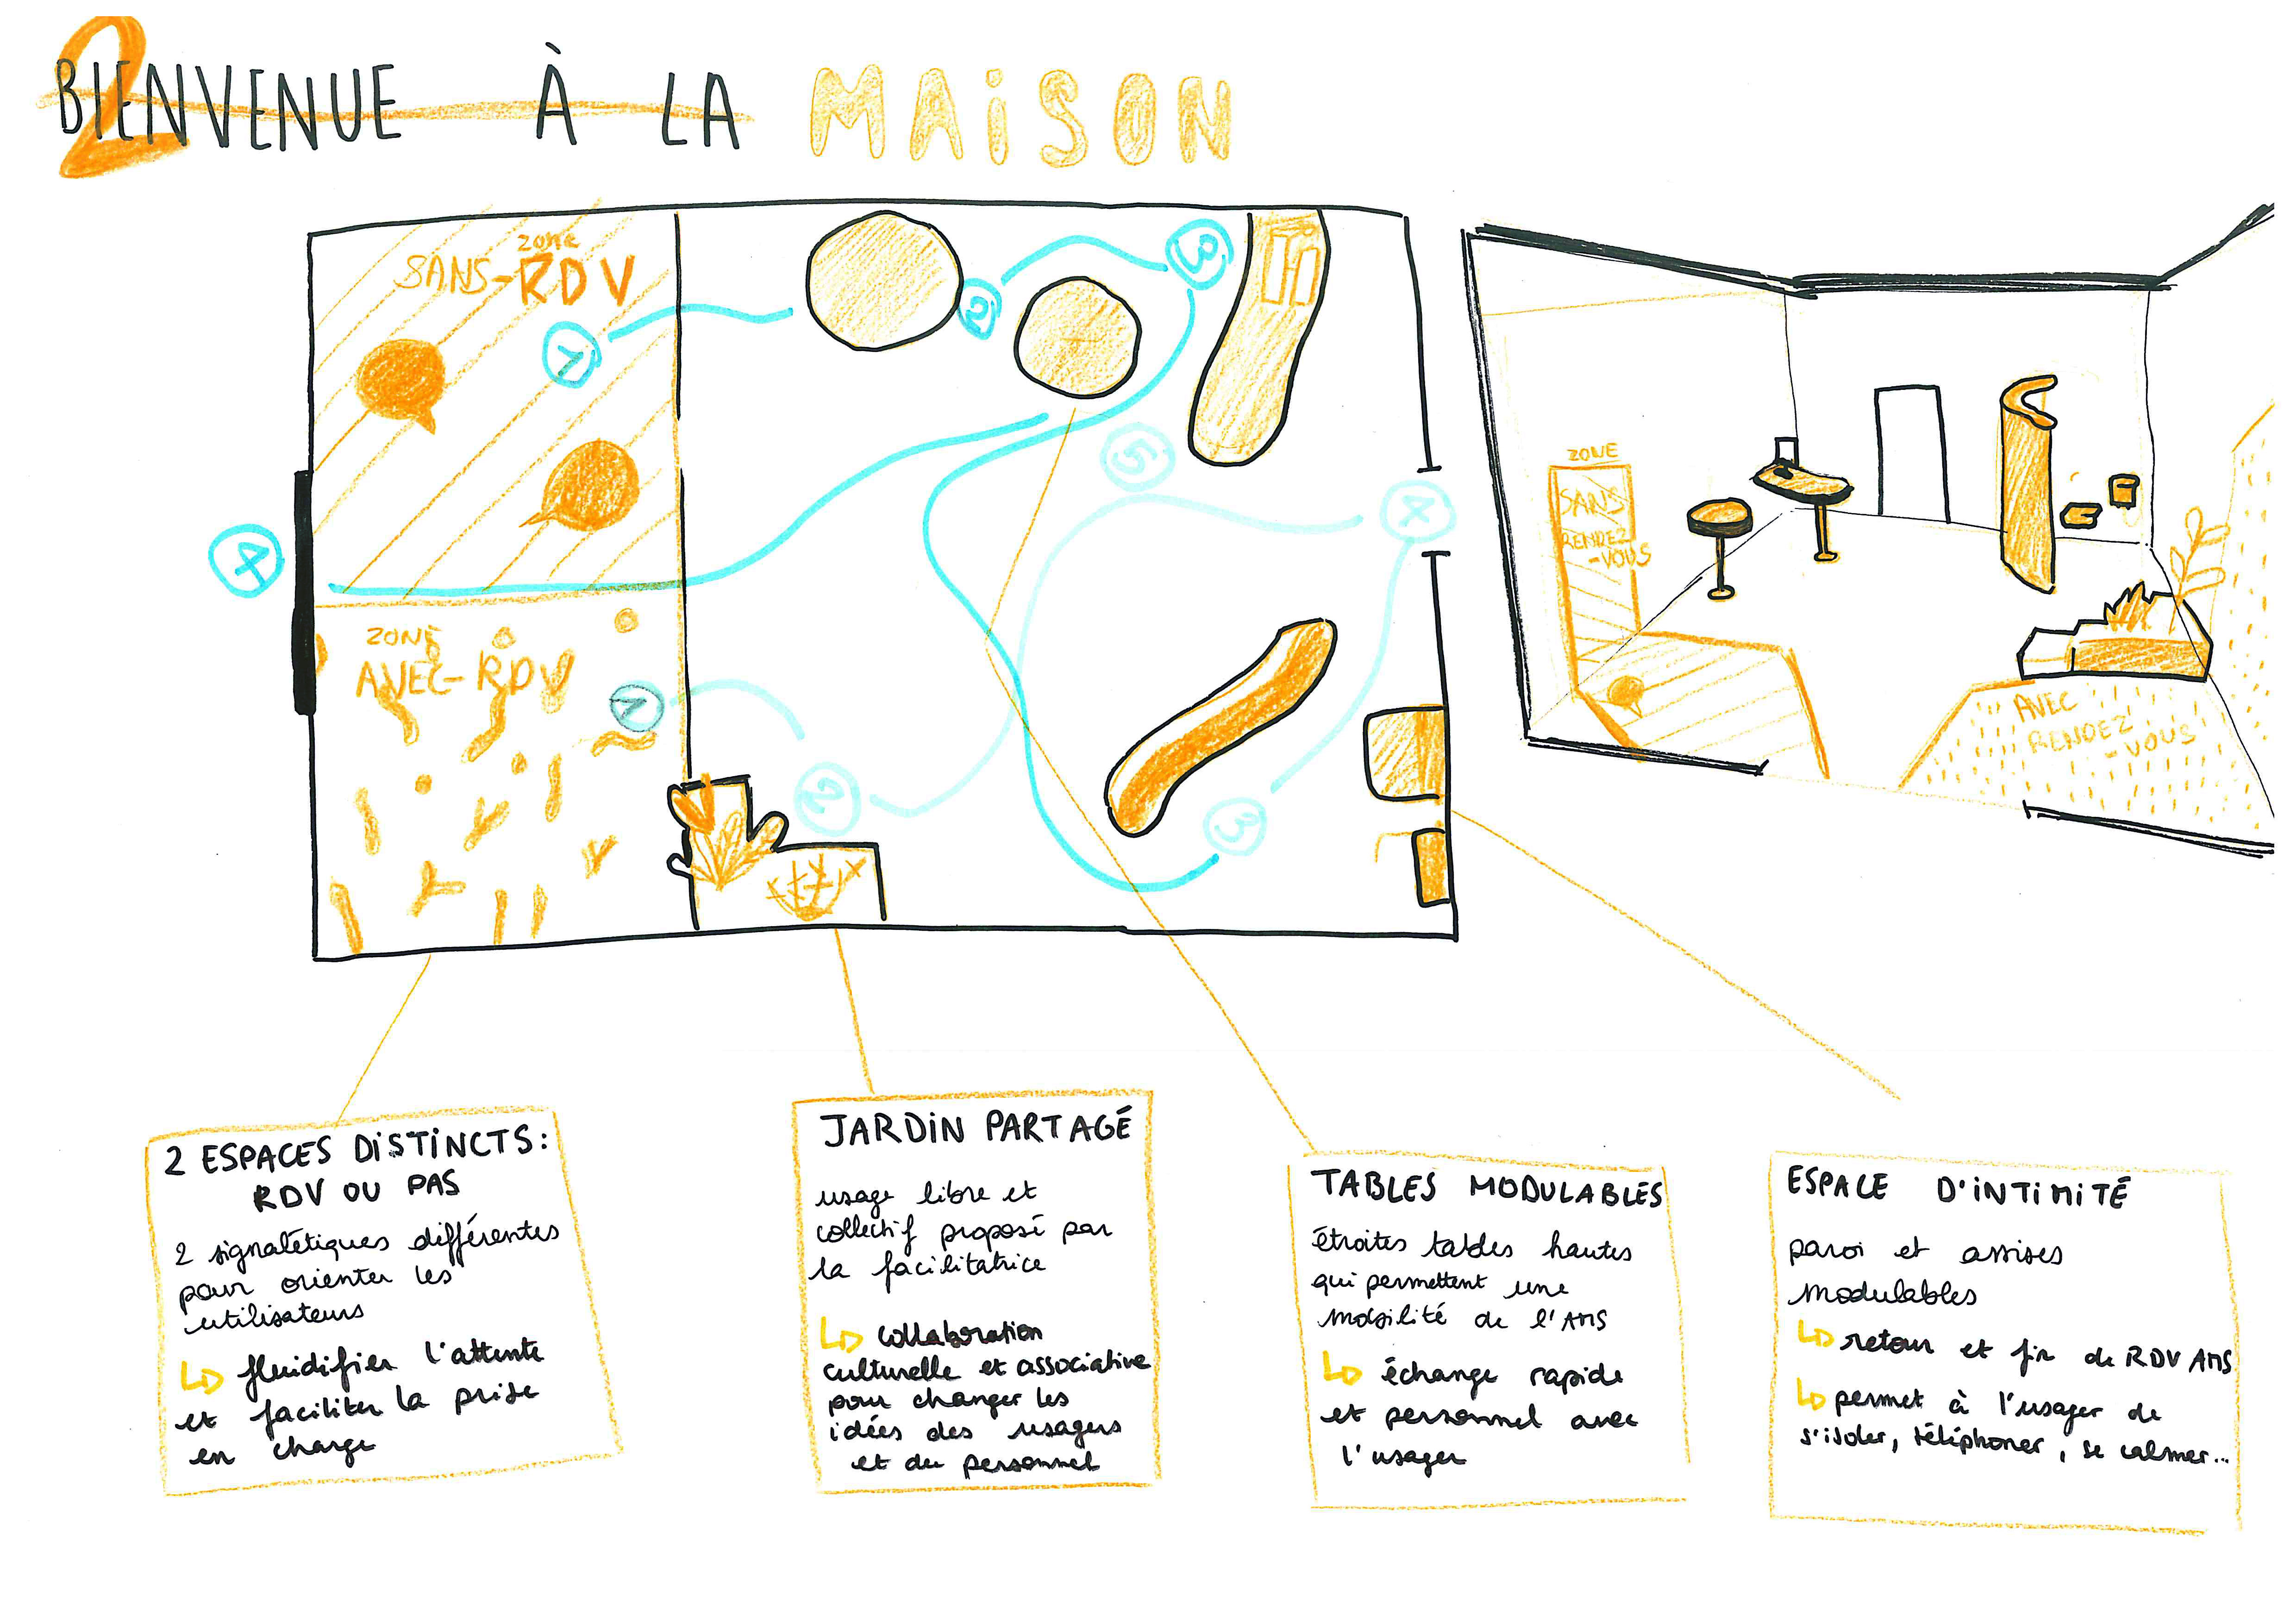 2
BIENVENUE À LA MAISON
zone
SANS-RDV
1
2
3
5
4
4
ZONE
AVEC-RDV
1
2
3
ZONE
SANS
RENDEZ
-VOUS
AVEC
RENDEZ
-VOUS
2 ESPACES DISTINCTS:
RDV OU PAS
2 signalétiques différentes
pour orienter les
utilisateurs
fluidifier l'attente
et faciliter la prise
en charge
JARDIN PARTAGÉ
usage libre et
collectif proposé par
la facilitatrice
collaboration
culturelle et associative
pour changer les
idées des usagers
et du personnel
TABLES MODULABLES
étroites tables hautes
qui permettent une
mobilité de l'AMS
échange rapide
et personnel avec
l'usager
ESPACE D'INTIMITÉ
paroi et assises
modulables
retour et fin de RDV AMS
permet à l'usager de
s'isoler, téléphoner, se calmer...